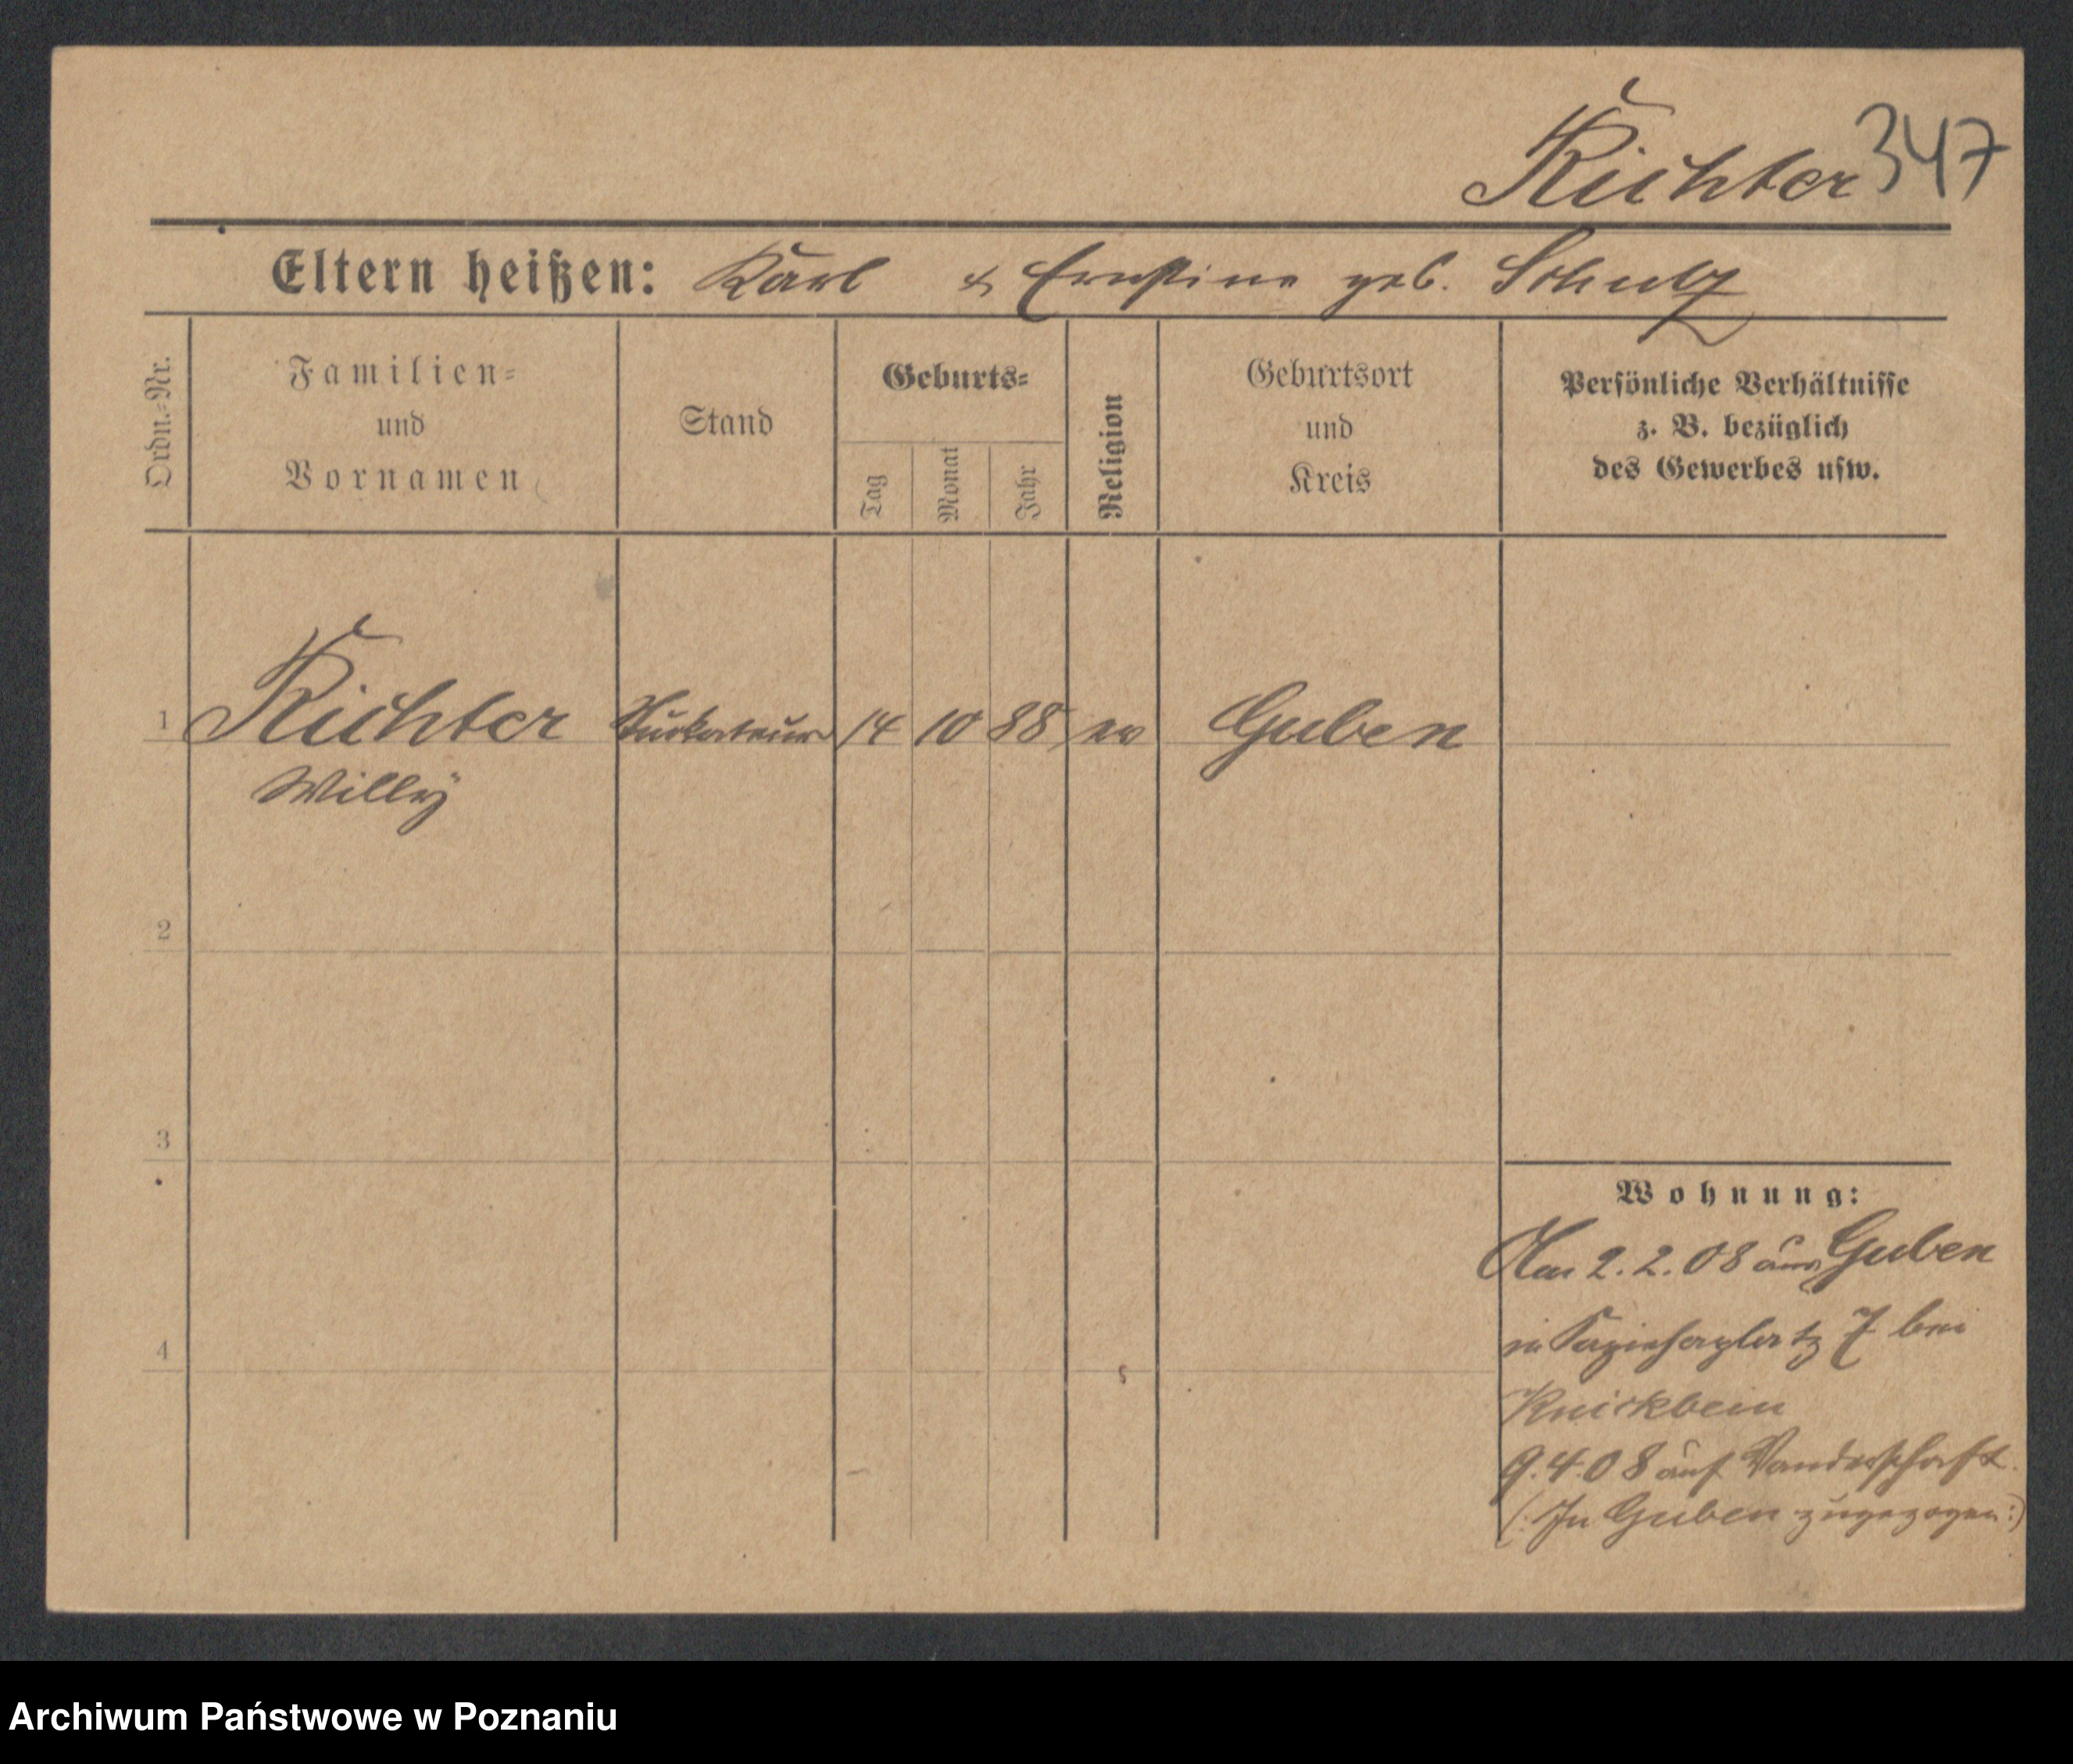 Richter 347
Eltern heißen: Karl & Ernstine geb. Schulz
Ordn.-Nr.
Familien-
und
Vornamen
Stand
Geburts-
Tag
Monat
Jahr
Religion
Geburtsort
und
Kreis
Persönliche Verhältnisse
z. B. bezüglich
des Gewerbes usw.
1 Richter Stuckateur 14 10 88 ev Guben
Willy
2
3
4
Wohnung:
Am 2.2.08 aus Guben
7 bei
Knickbein
9.4.08 auf Wanderschaft.
(: In Guben zugezogen :)
Archiwum Państwowe w Poznaniu